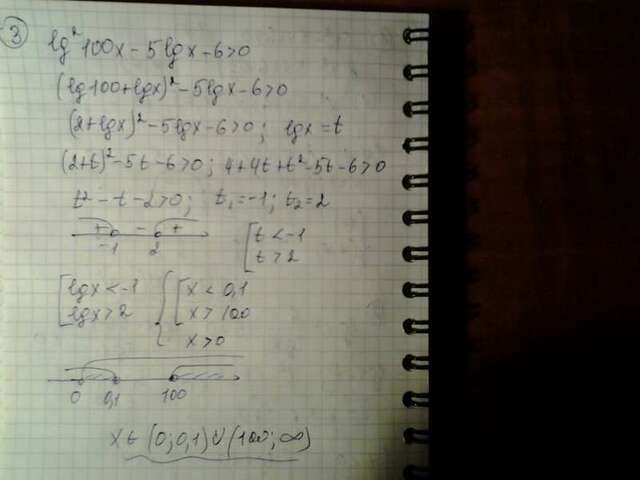 3 lg²100x - 5lgx - 6>0
(lg100+lgx)² - 5lgx - 6>0
(2+lgx)² - 5lgx - 6>0; lgx = t
(2+t)² - 5t - 6>0; 4+4t+t² - 5t - 6>0
t² - t - 2>0; t₁=-1; t₂=2
+ - +
-1 2
[t < -1
t > 2
[lgx < -1
lgx > 2
{[x < 0,1
x > 100
x > 0
0 0,1 100
x ∈ (0; 0,1) ∪ (100; ∞)